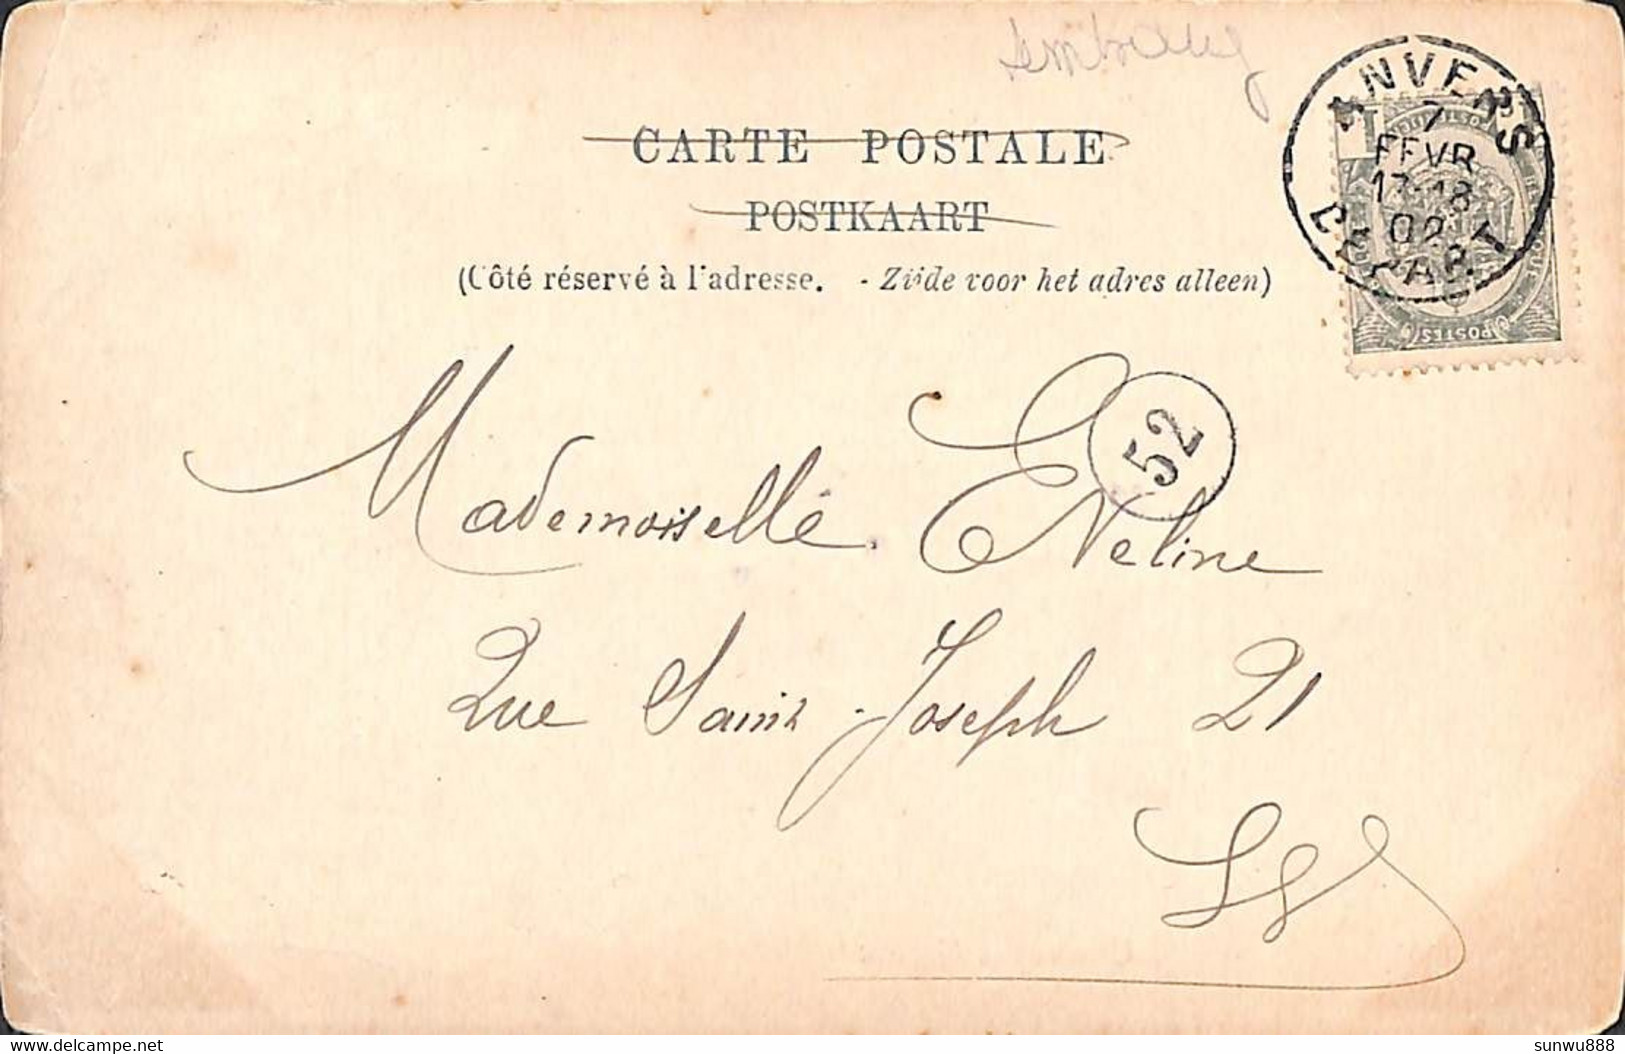 ANVERS
7
FEVR
17-18
02
DEPART
POSTES
CARTE POSTALE
POSTKAART
(Côté réservé à l'adresse. - Zijde voor het adres alleen)
52
Mademoiselle Eveline
Rue Saint Joseph 21
sunwu888